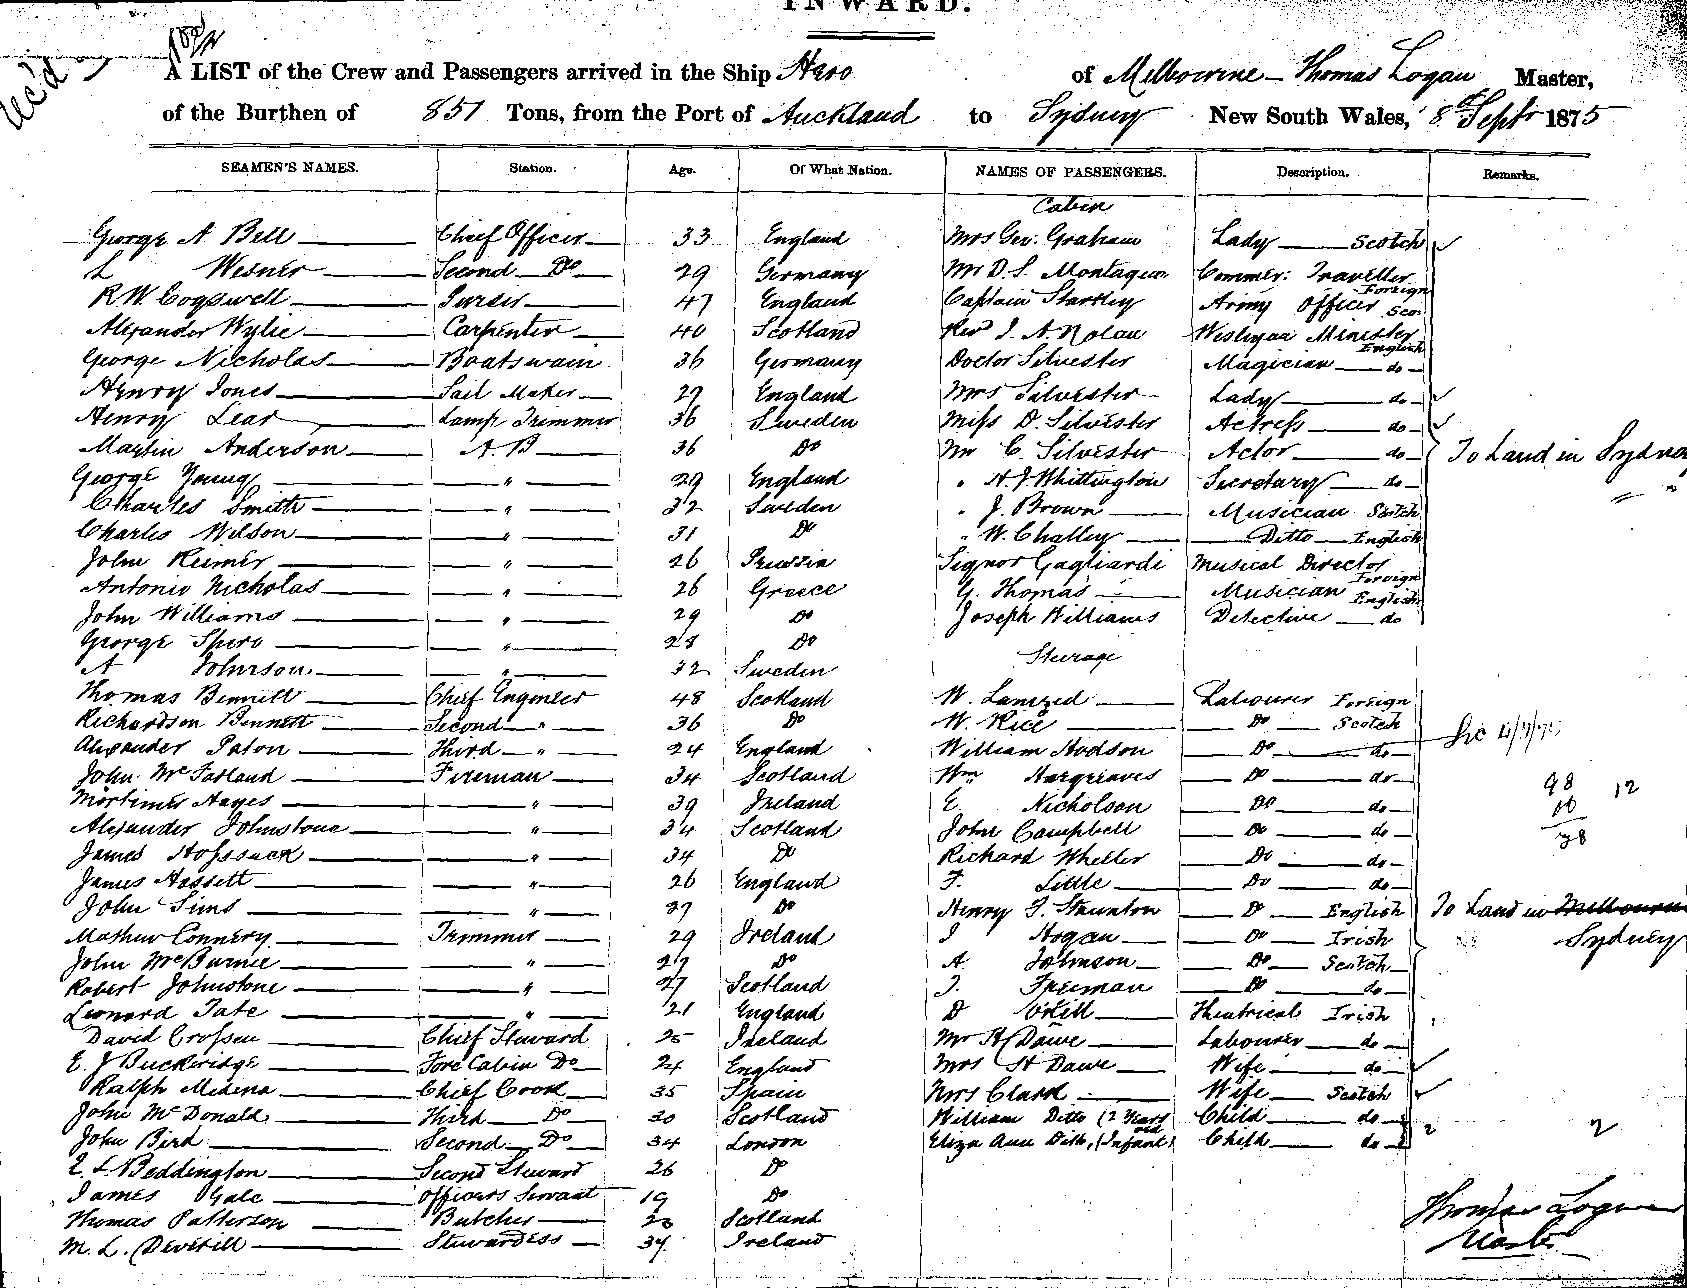 INWARD.
Rec'd
A LIST of the Crew and Passengers arrived in the Ship Hero of Melbourne - Thomas Logan Master,
of the Burthen of 851 Tons, from the Port of Auckland to Sydney New South Wales, 8th Septr 1875
SEAMEN'S NAMES. Station. Age. Of What Nation. NAMES OF PASSENGERS. Description. Remarks.
Cabin
George A Bell Chief Officer 33 England Mrs Geo. Graham Lady Scotch
L Wesner Second Do 29 Germany Mr D. S. Montague Commer: Traveller Foreign
R. W. Cogswell Purser 47 England Captain Starkley Army Officer Sco.
Alexander Wylie Carpenter 40 Scotland Rev J. A. Nolan Wesleyan Minister English
George Nicholas Boatswain 36 Germany Doctor Silvester Magician do
Henry Jones Sail Maker 29 England Mrs Silvester Lady do
Henry Lear Lamp Trimmer 36 Sweden Miss D. Silvester Actress do
Martin Anderson A B 36 Do Mr C. Silvester Actor do To Land in Sydney
George Young " 29 England " H. J Whittington Secretary do
Charles Smith " 32 Sweden " J. Brown Musician Scotch
Charles Wilson " 31 Do " W. Challey Ditto English
John Reimer " 26 Prussia Signor Gagliardi Musical Director Foreign
Antonio Nicholas " 26 Greece G. Thomas Musician English
John Williams " 29 Do Joseph Williams Detective do
George Spiro " 28 Do
Steerage
A Johnson " 32 Sweden
Thomas Bennett Chief Engineer 48 Scotland W. Lamzed Labourer Foreign
Richardson Bennett Second " 36 Do W. Rice Do Scotch
Alexander Paton Third " 24 England William Hodson Do do
John McFarland Fireman 34 Scotland Wm Hargreaves Do do
Mortimer Hayes " 39 Ireland E. Nicholson Do do
98 12
Alexander Johnstone " 34 Scotland John Campbell Do do
James Hossack " 34 Do Richard Wheller Do do
James Hassett " 26 England F. Little Do do
John Sims " 37 Do Henry J. Staunton Do English To Land in Melbourne
Mathew Connery Trimmer 29 Ireland J Hogan Do Irish Sydney
John McBurnie " 27 Do A. Johnson Do Scotch
Robert Johnstone " 27 Scotland J. Freeman Do do
Leonard Tate " 21 England D Theatrical Irish
David Crossen Chief Steward 25 Ireland Mr H Dawe Labourer do
E. J Buckeridge Fore Cabin Do 24 England Mrs H Dawe Wife do
Ralph Midena Chief Cook 35 Spain Mrs Clark Wife Scotch
John McDonald Third Do 30 Scotland William Ditto (2 Years old) Child do
John Bird Second Do 34 London Eliza Ann Ditto, (Infant) Child do 2 2
E. L. Beddington Second Steward 26 Do
James Gale Officers Servant 19 Do
Thomas Patterson Butcher 20 Scotland
M. L. Deverill Stewardess 34 Ireland
Thomas Logan
Master